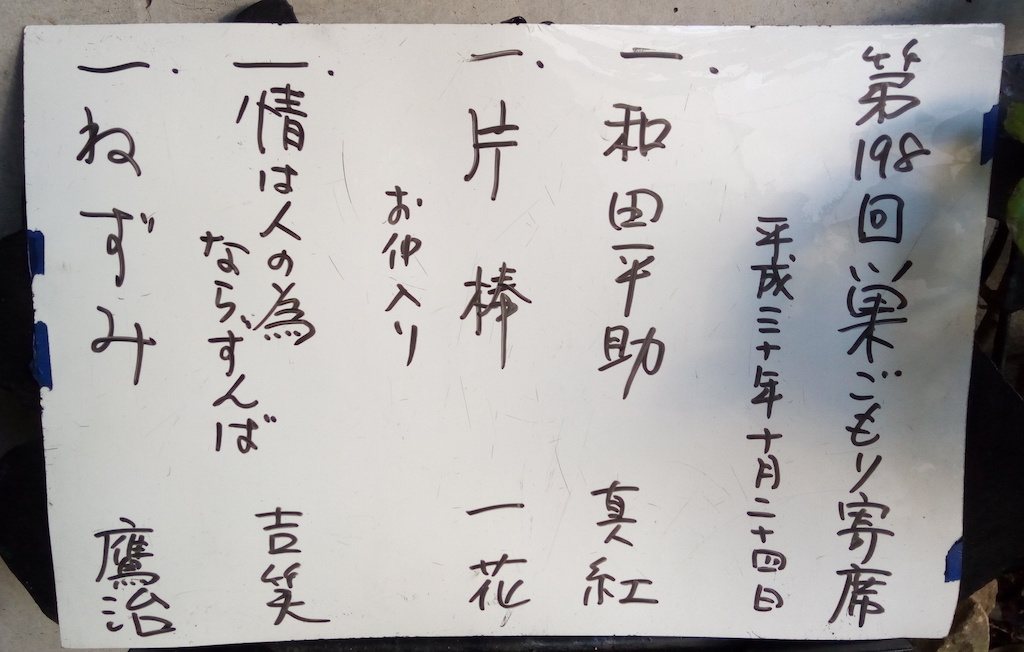 第198回 巣ごもり寄席
平成三十年十月二十四日
一. 和田平助 真紅
一. 片棒 一花
お仲入り
一. 情は人の為
ならずんば 吉笑
一. ねずみ 鷹治